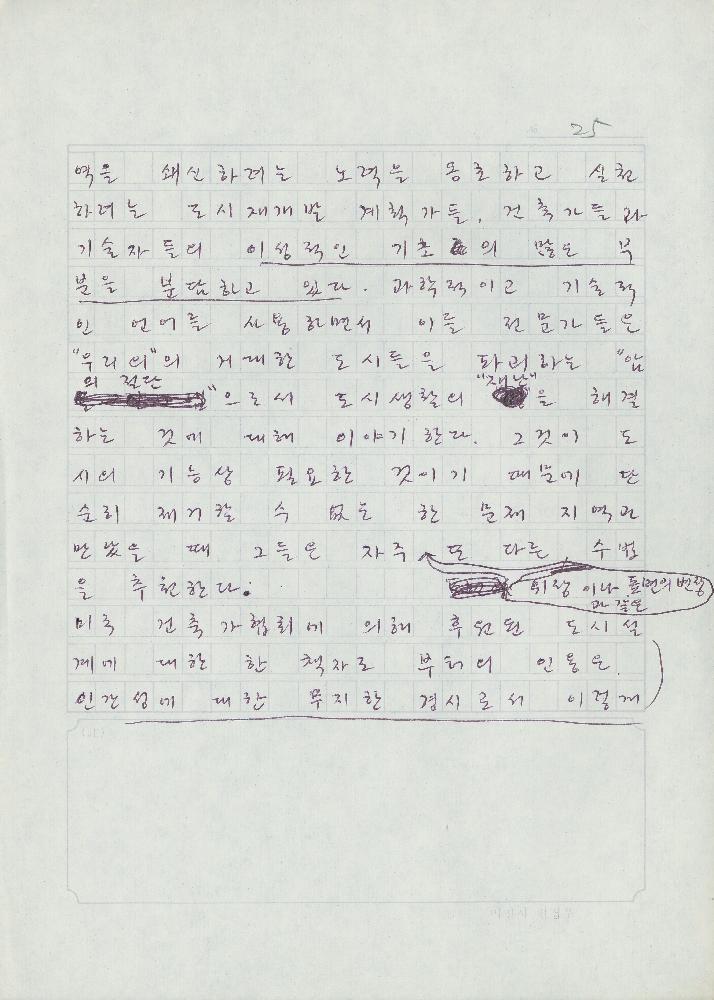 25
역을 쇄신하려는 노력을 옹호하고 실천
하려는 도시재개발 계획가들, 건축가들과
기술자들의 이성적인 기초의 많은 부
분을 분담하고 있다. 과학적이고 기술적
인 언어를 사용하면서 이들 전문가들은
"우리의"의 거대한 도시들을 파괴하는 "암
의 절단"으로서 도시생활의 "재난"을 해결
하는 것에 대해 이야기한다. 그것이 도
시의 기능상 필요한 것이기 때문에 단
순히 제거할 수 없는 한 문제 지역과
만났을 때 그들은 자주 또 다른 수법
위장이나 표면의 변장
과 같은
을 추천한다.
미국 건축가협회에 의해 후원된 도시설
계에 대한 한 책자로 부터의 인용은
인간성에 대한 무지한 경시로서 이렇게